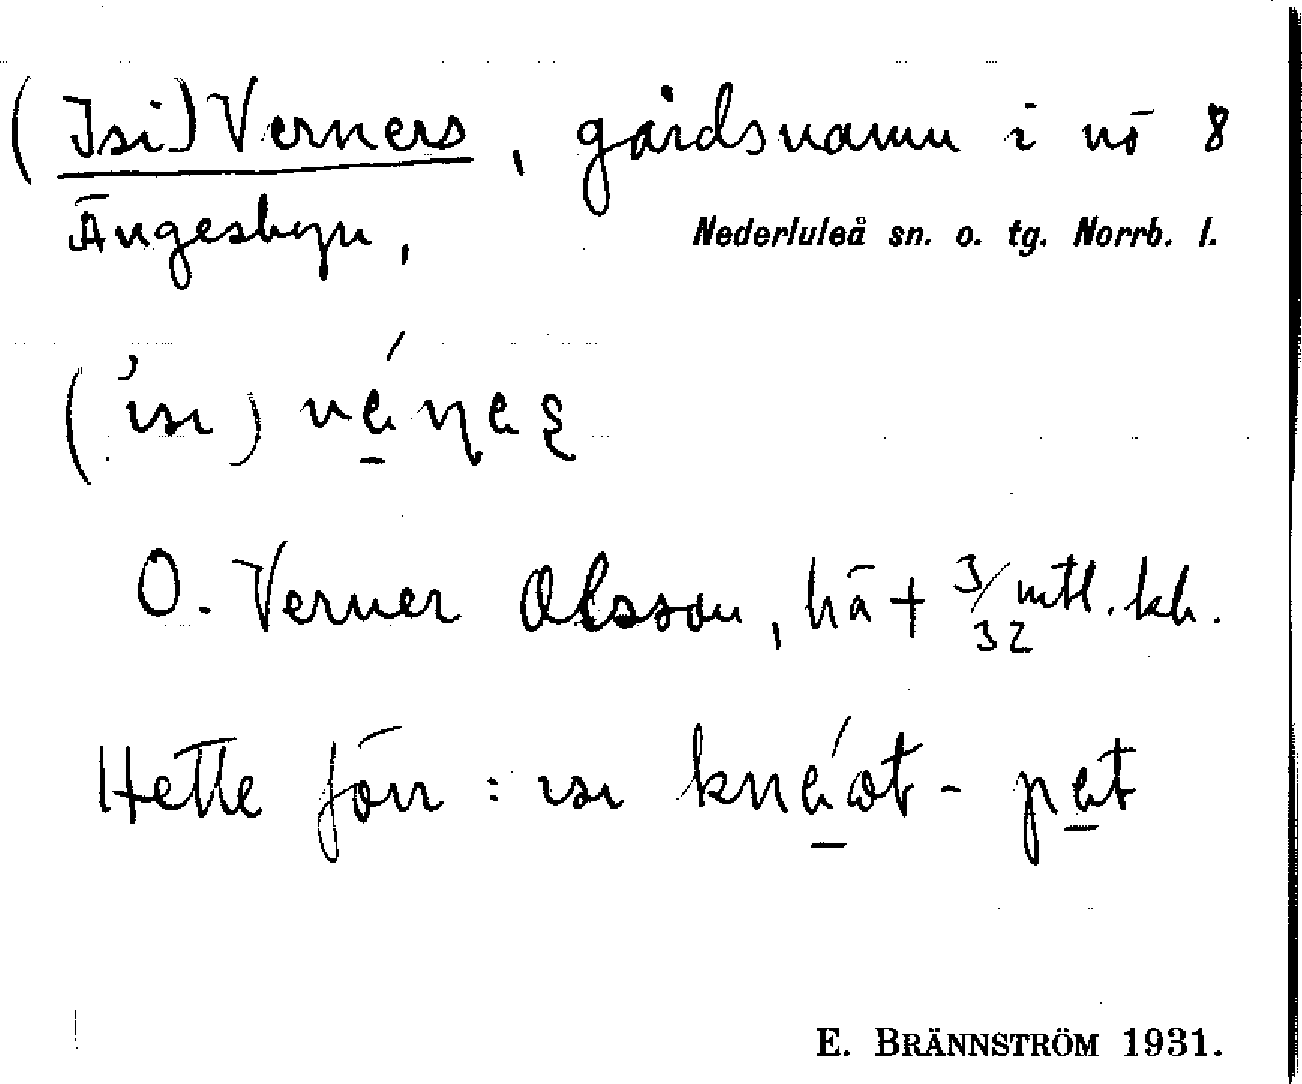 (Isi) Verners, gårdsnamn i nö 8
Ängesbyn,
Nederluleå sn. o. tg. Norrb. l.
O. Verner Olsson, hä + 3/32 mtl. kh.
Hette förr: ısı
E. BRÄNNSTRÖM 1931.